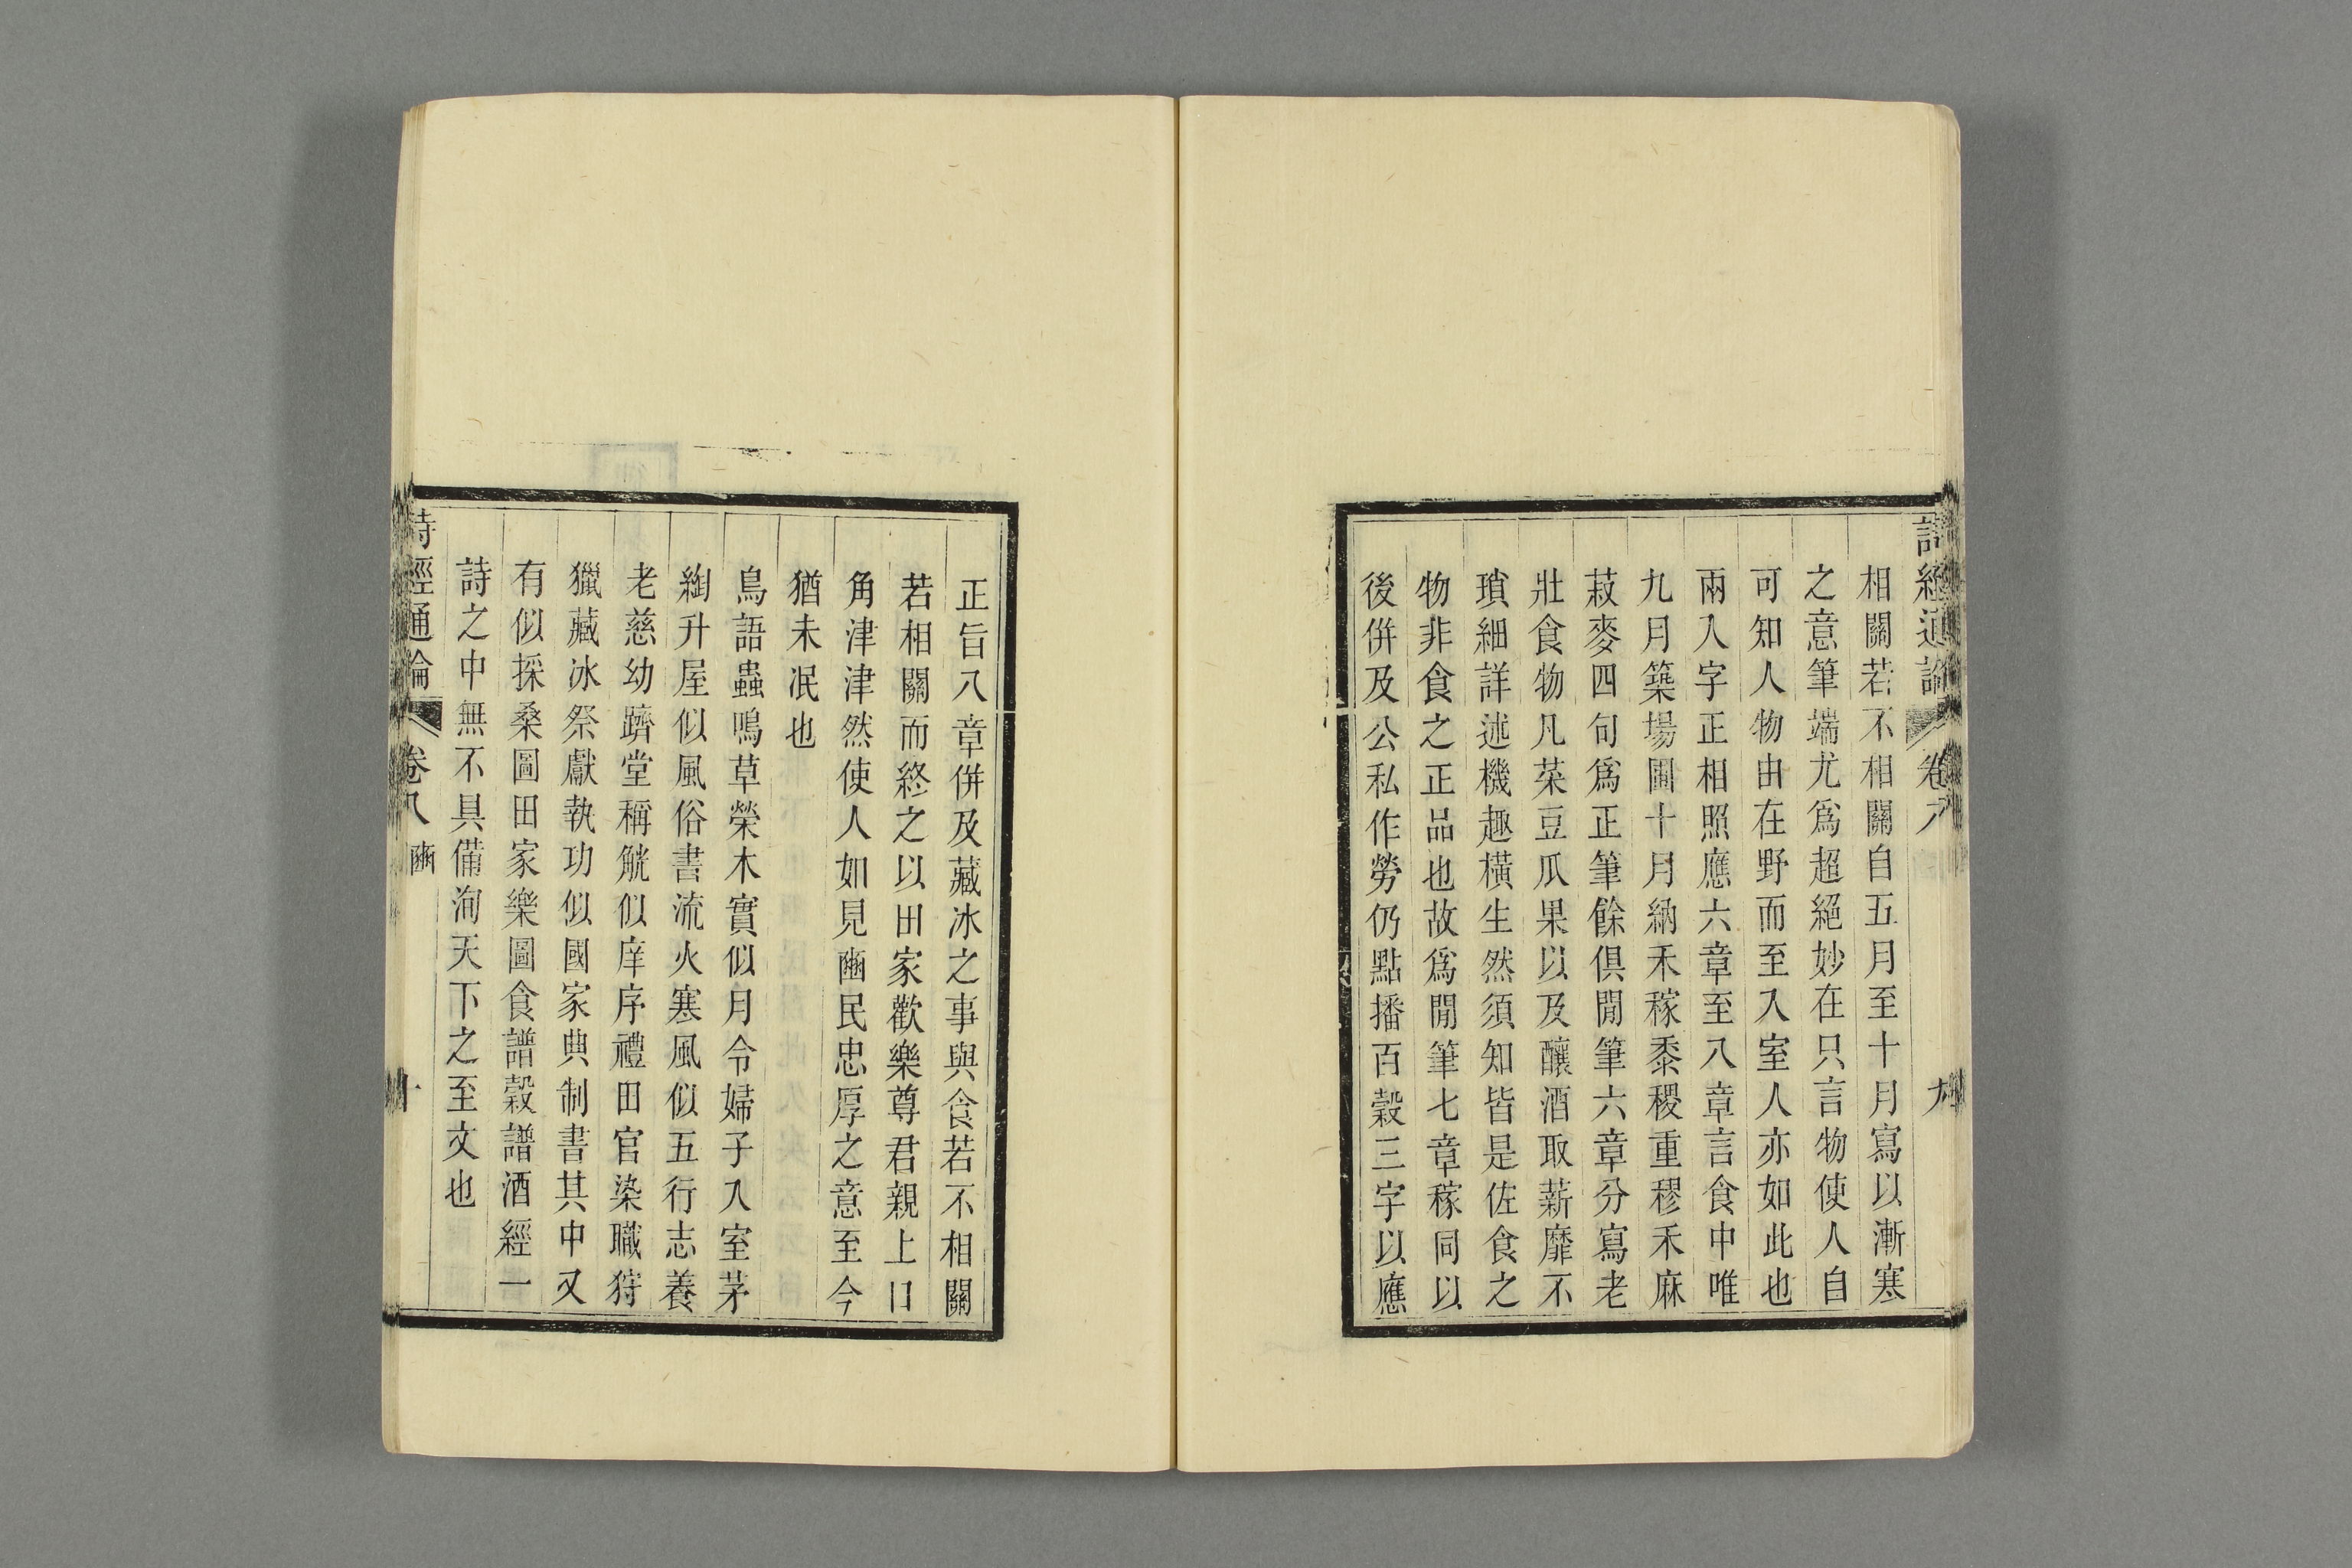 詩經通論 卷八 九
相關若不相關自五月至十月寫以漸寒
之意筆端尤爲超絕妙在只言物使人自
可知人物由在野而至入室人亦如此也
兩入字正相照應六章至八章言食中唯
九月築場圃十月納禾稼黍稷重穋禾麻
菽麥四句爲正筆餘俱閒筆六章分寫老
壯食物凡菜豆瓜果以及釀酒取薪靡不
瑣細詳述機趣橫生然須知皆是佐食之
物非食之正品也故爲閒筆七章稼同以
後併及公私作勞仍點播百穀三字以應
正旨八章併及藏冰之事與食若不相關
若相關而終之以田家歡樂尊君親上口
角津津然使人如見豳民忠厚之意至今
猶未泯也
鳥語蟲鳴草榮木實似月令婦子入室茅
綯升屋似風俗書流火寒風似五行志養
老慈幼躋堂稱觥似庠序禮田官染職狩
獵藏冰祭獻執功似國家典制書其中又
有似採桑圖田家樂圖食譜穀譜酒經一
詩之中無不具備洵天下之至文也
詩經通論 卷八 豳 十